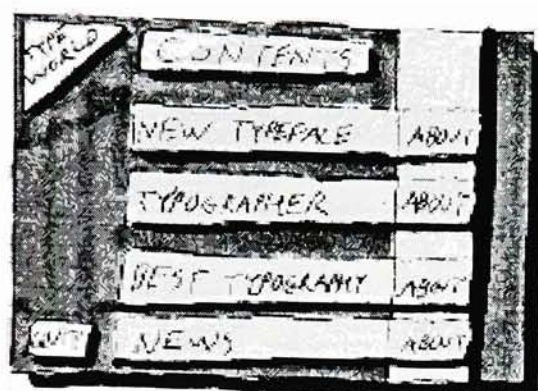 TYPE
WORLD
CONTENTS
NEW TYPEFACE ABOUT
TYPOGRAPHER ABOUT
BEST TYPOGRAPHY ABOUT
QUIT NEWS ABOUT